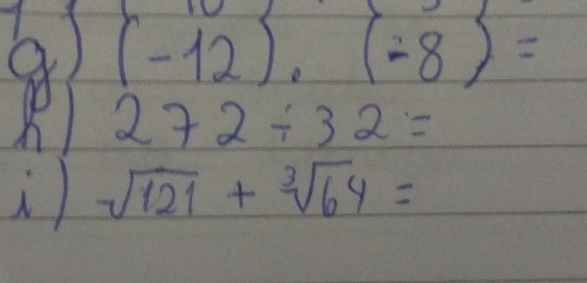 g) (-12) . (-8) =
h) 272 ÷ 32 =
i) √121 + ³√64 =